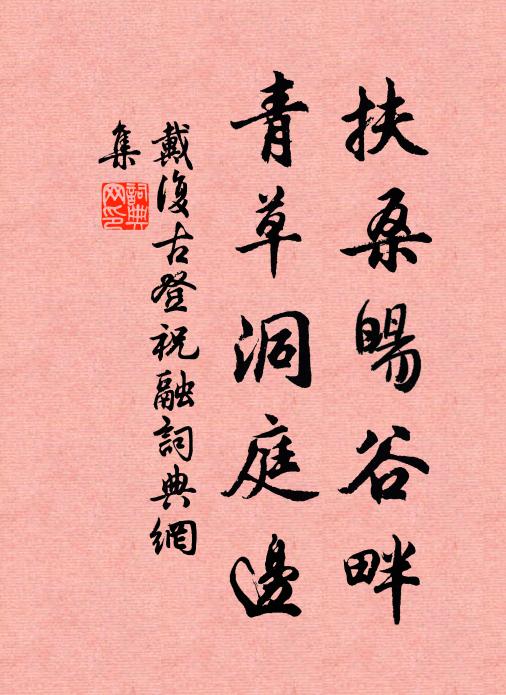 扶桑暘谷畔
青草洞庭邊
戴復古登祝融詞典網
集
詞典网印